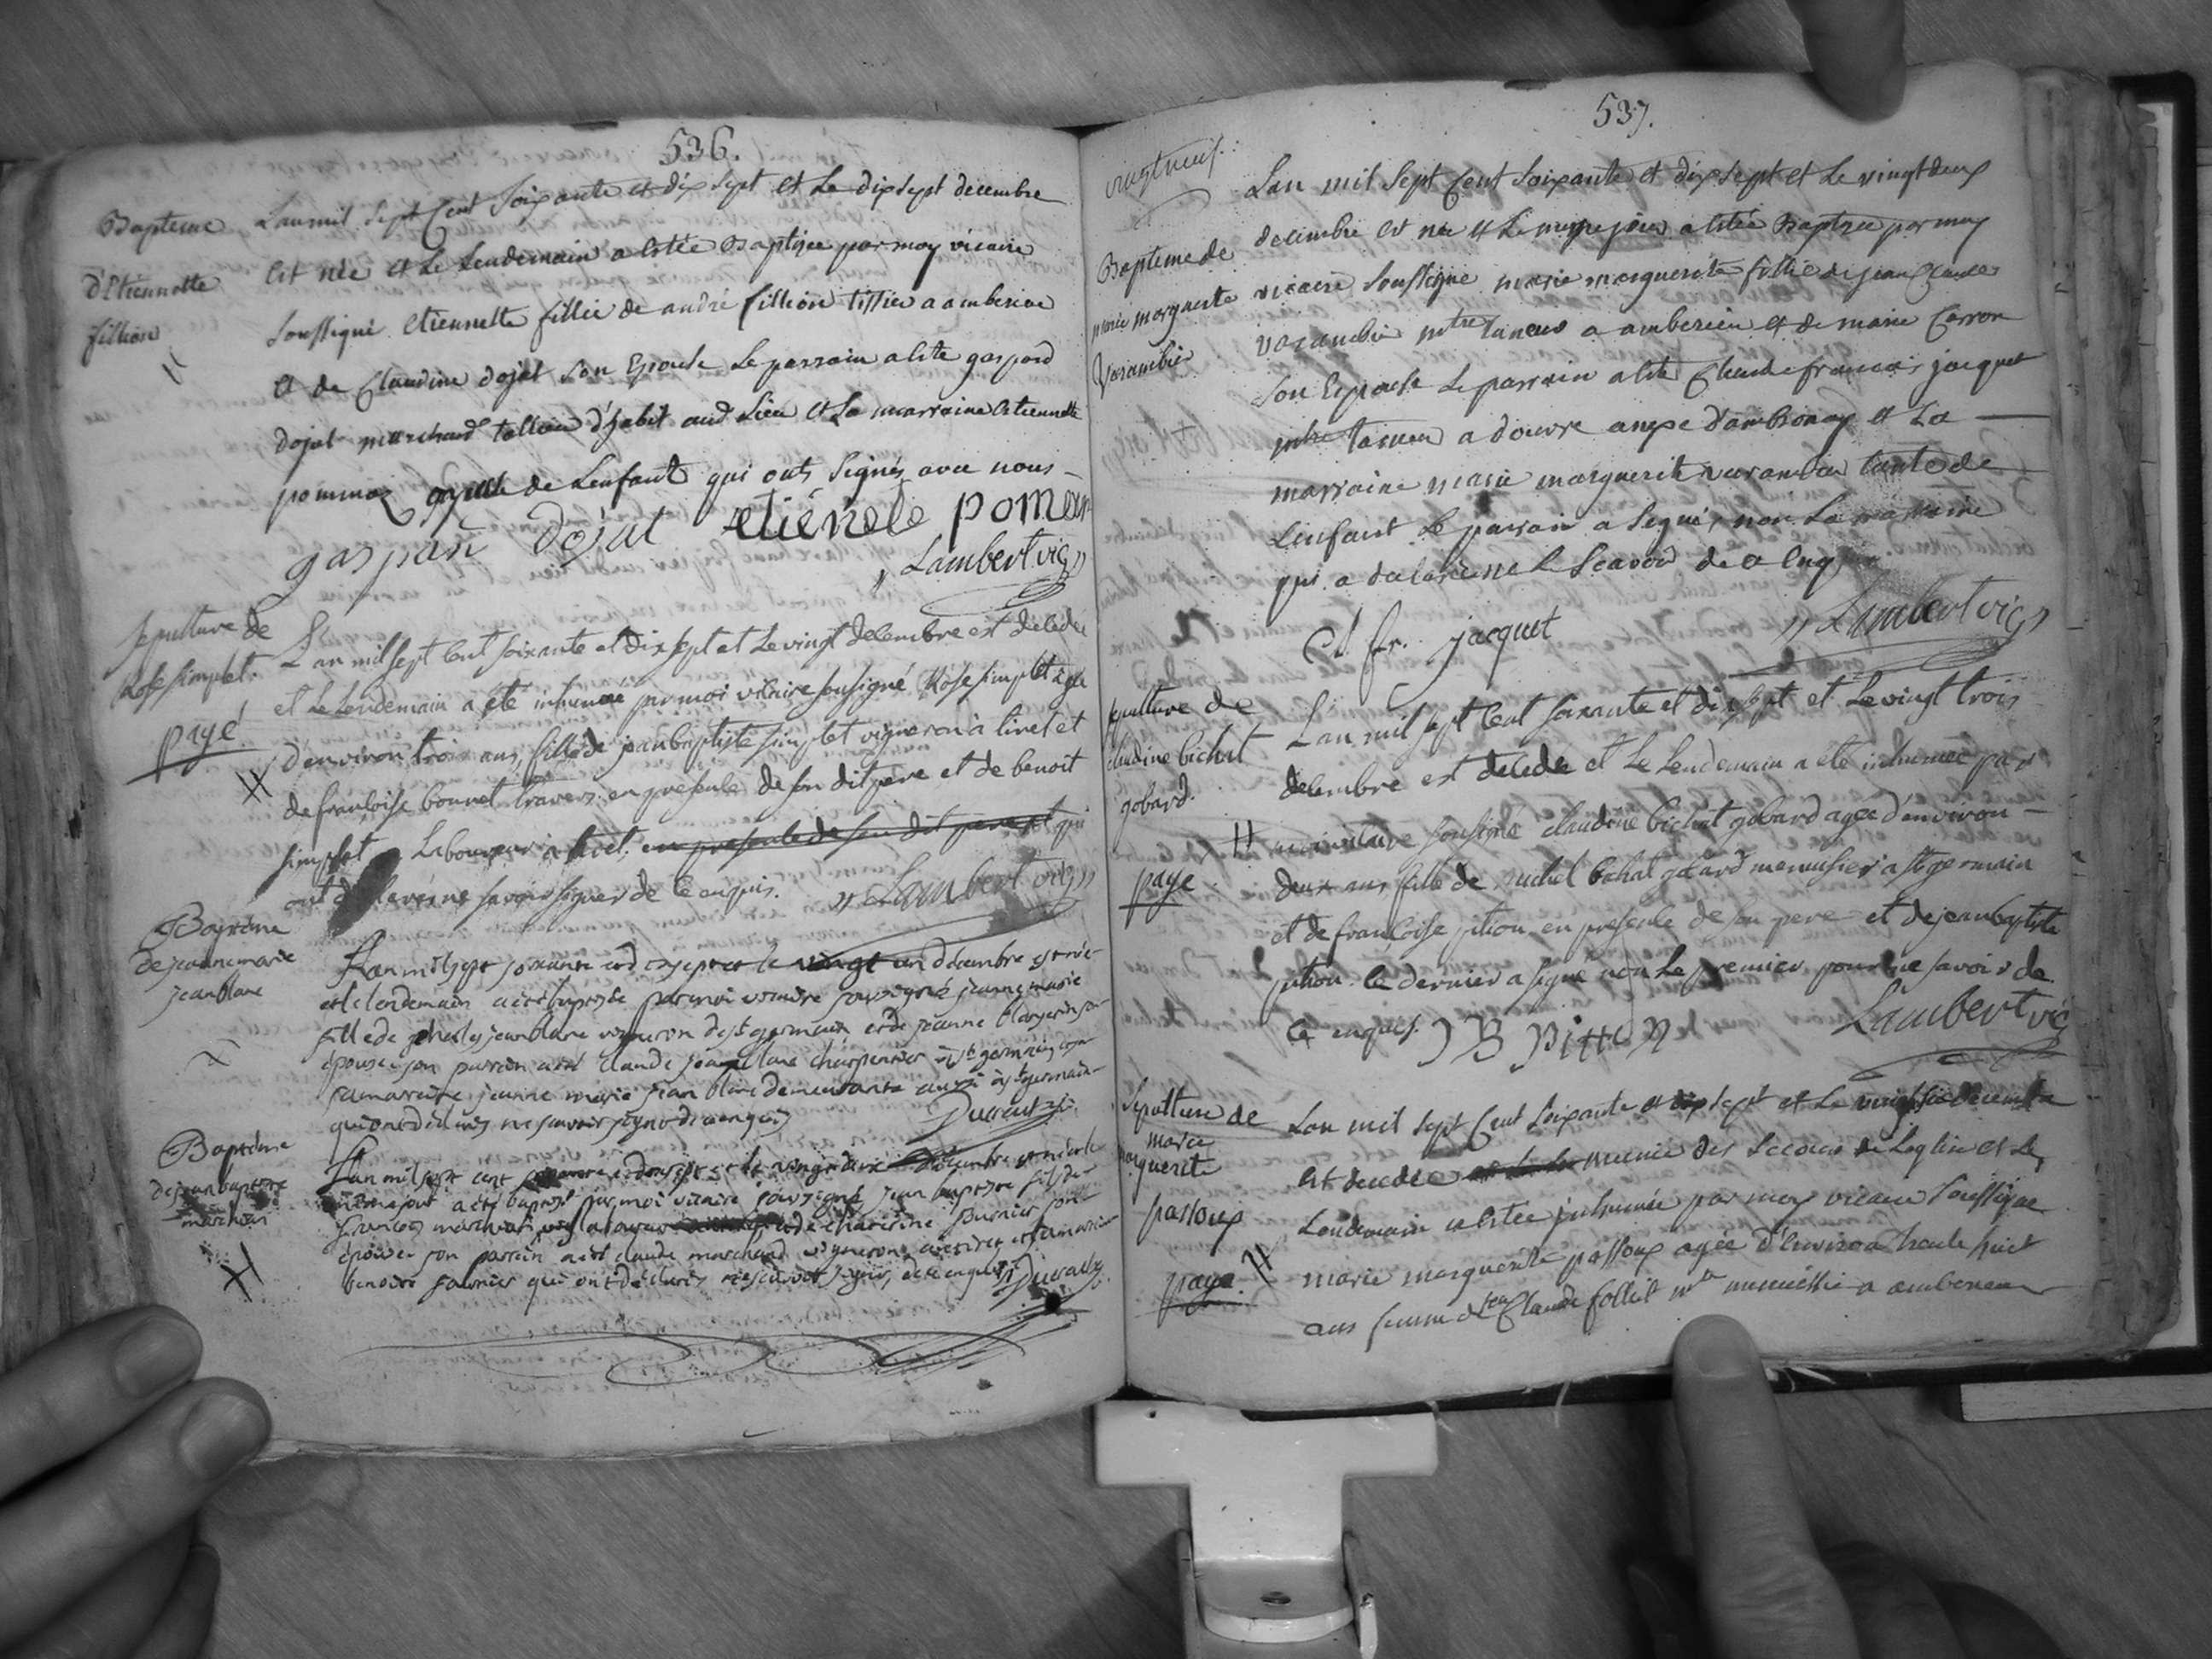 536.
Bapteme
d'Etiennette
fillion
Lan mil Sept Cent Soixante et dix sept et Le dix sept decembre
est née et Le Lendemain a estée Baptizee par moy vicaire
soussigné etiennette fillie de andré fillion tissier a amberieu
et de Claudine dojat son Epouse Le parrain a ete gaspard
dojat marchand d'habit aud Lieu et La marraine etiennette
de Lenfant qui onts Signés avec nous
gaspar dojat etienete pomer
Lambert vic
sepulture de
Rose simplet.
payé
Lan mil sept cent soixante et dix sept et Le vingt decembre est decedée
et Le Lendemain a été inhumée par moi vicaire sousigné Rose simplet agée
d'environ trois ans, fille de jean baptiste simplet vigneron à tiret et
de francoise bonnet travers en presence de son dit pere et de benoit
simplet Laboureur a tiret en presence de son dit pere et qui
ont declaré ne savoir signer de ce enquis. Lambert vic
Baptême
de jeanne marie
jean blanc
Lan mil sept soixante et dix sept et le vingt un décembre est née
et le lendemain a été baptisée par moi vicaire soussigné jeanne marie
fille de jean blanc vigneron de st germain et de jeanne
épouse son parrain a été claude jean blanc charpentier a st germain
sa marraine jeanne marie jean blanc demeurante aussi à st germain
qui ont déclarés ne savoir signer de ce enquis
Baptême
de jean baptiste
marchand
Lan mil sept cent et dix sept et le vingt deux décembre est né et le
même jour a été baptisé par moi vicaire soussigné jean baptiste fils de
françois marchand et de
épouse son parrain a été claude marchand vigneron a tiret et sa marraine
benoite qui ont déclarés ne savoir signer de ce enquis
537.
vingt neuf.
Bapteme de
marie marguerite
Varambier
Lan mil Sept Cent Soixante et dix sept et Le vingt deux
decembre est née et Le meme jour a estée Baptizee par moy
vicaire soussigné marie marguerite fillie de jean Claude
varambier mtre taneur a amberieu et de marie Carron
son Epouse Le parrain a ete Claude francois jacquet
mtre taneur a douvre anexe d'ambronay et La
marraine marie marguerite varambier tante de
Lenfant Le parrain a signé, non La marraine
qui a declaré ne Le Scavoir de ce enq
Cl. fr. jacquet Lambert vic
sepulture de
claudine bichat
gobard.
paye
Lan mil sept cent soixante et dix sept et Le vingt trois
decembre est decedée et Le Lendemain a été inhumée par
moi vicaire sousigné claudine bichat gobard agée d'environ
deux ans, fille de michel bichat gobard menusier a st germain
et de francoise pition en presence de son pere et de jean baptiste
pition. le dernier a signé non Le premier pour ne savoir de
ce enquis. J B Pition Lambert vic
Sepulture de
marie
marguerite
passoux
paye.
Lan mil Sept Cent Soixante et dix sept et Le vingt six decembre
est decedée munie des Secours de Leglise et Le
Lendemain a estée inhumée par moy vicaire Soussigné
marie marguerite passoux agée d'environ trente huit
ans femme de feu Claude follict mtre a amberieu